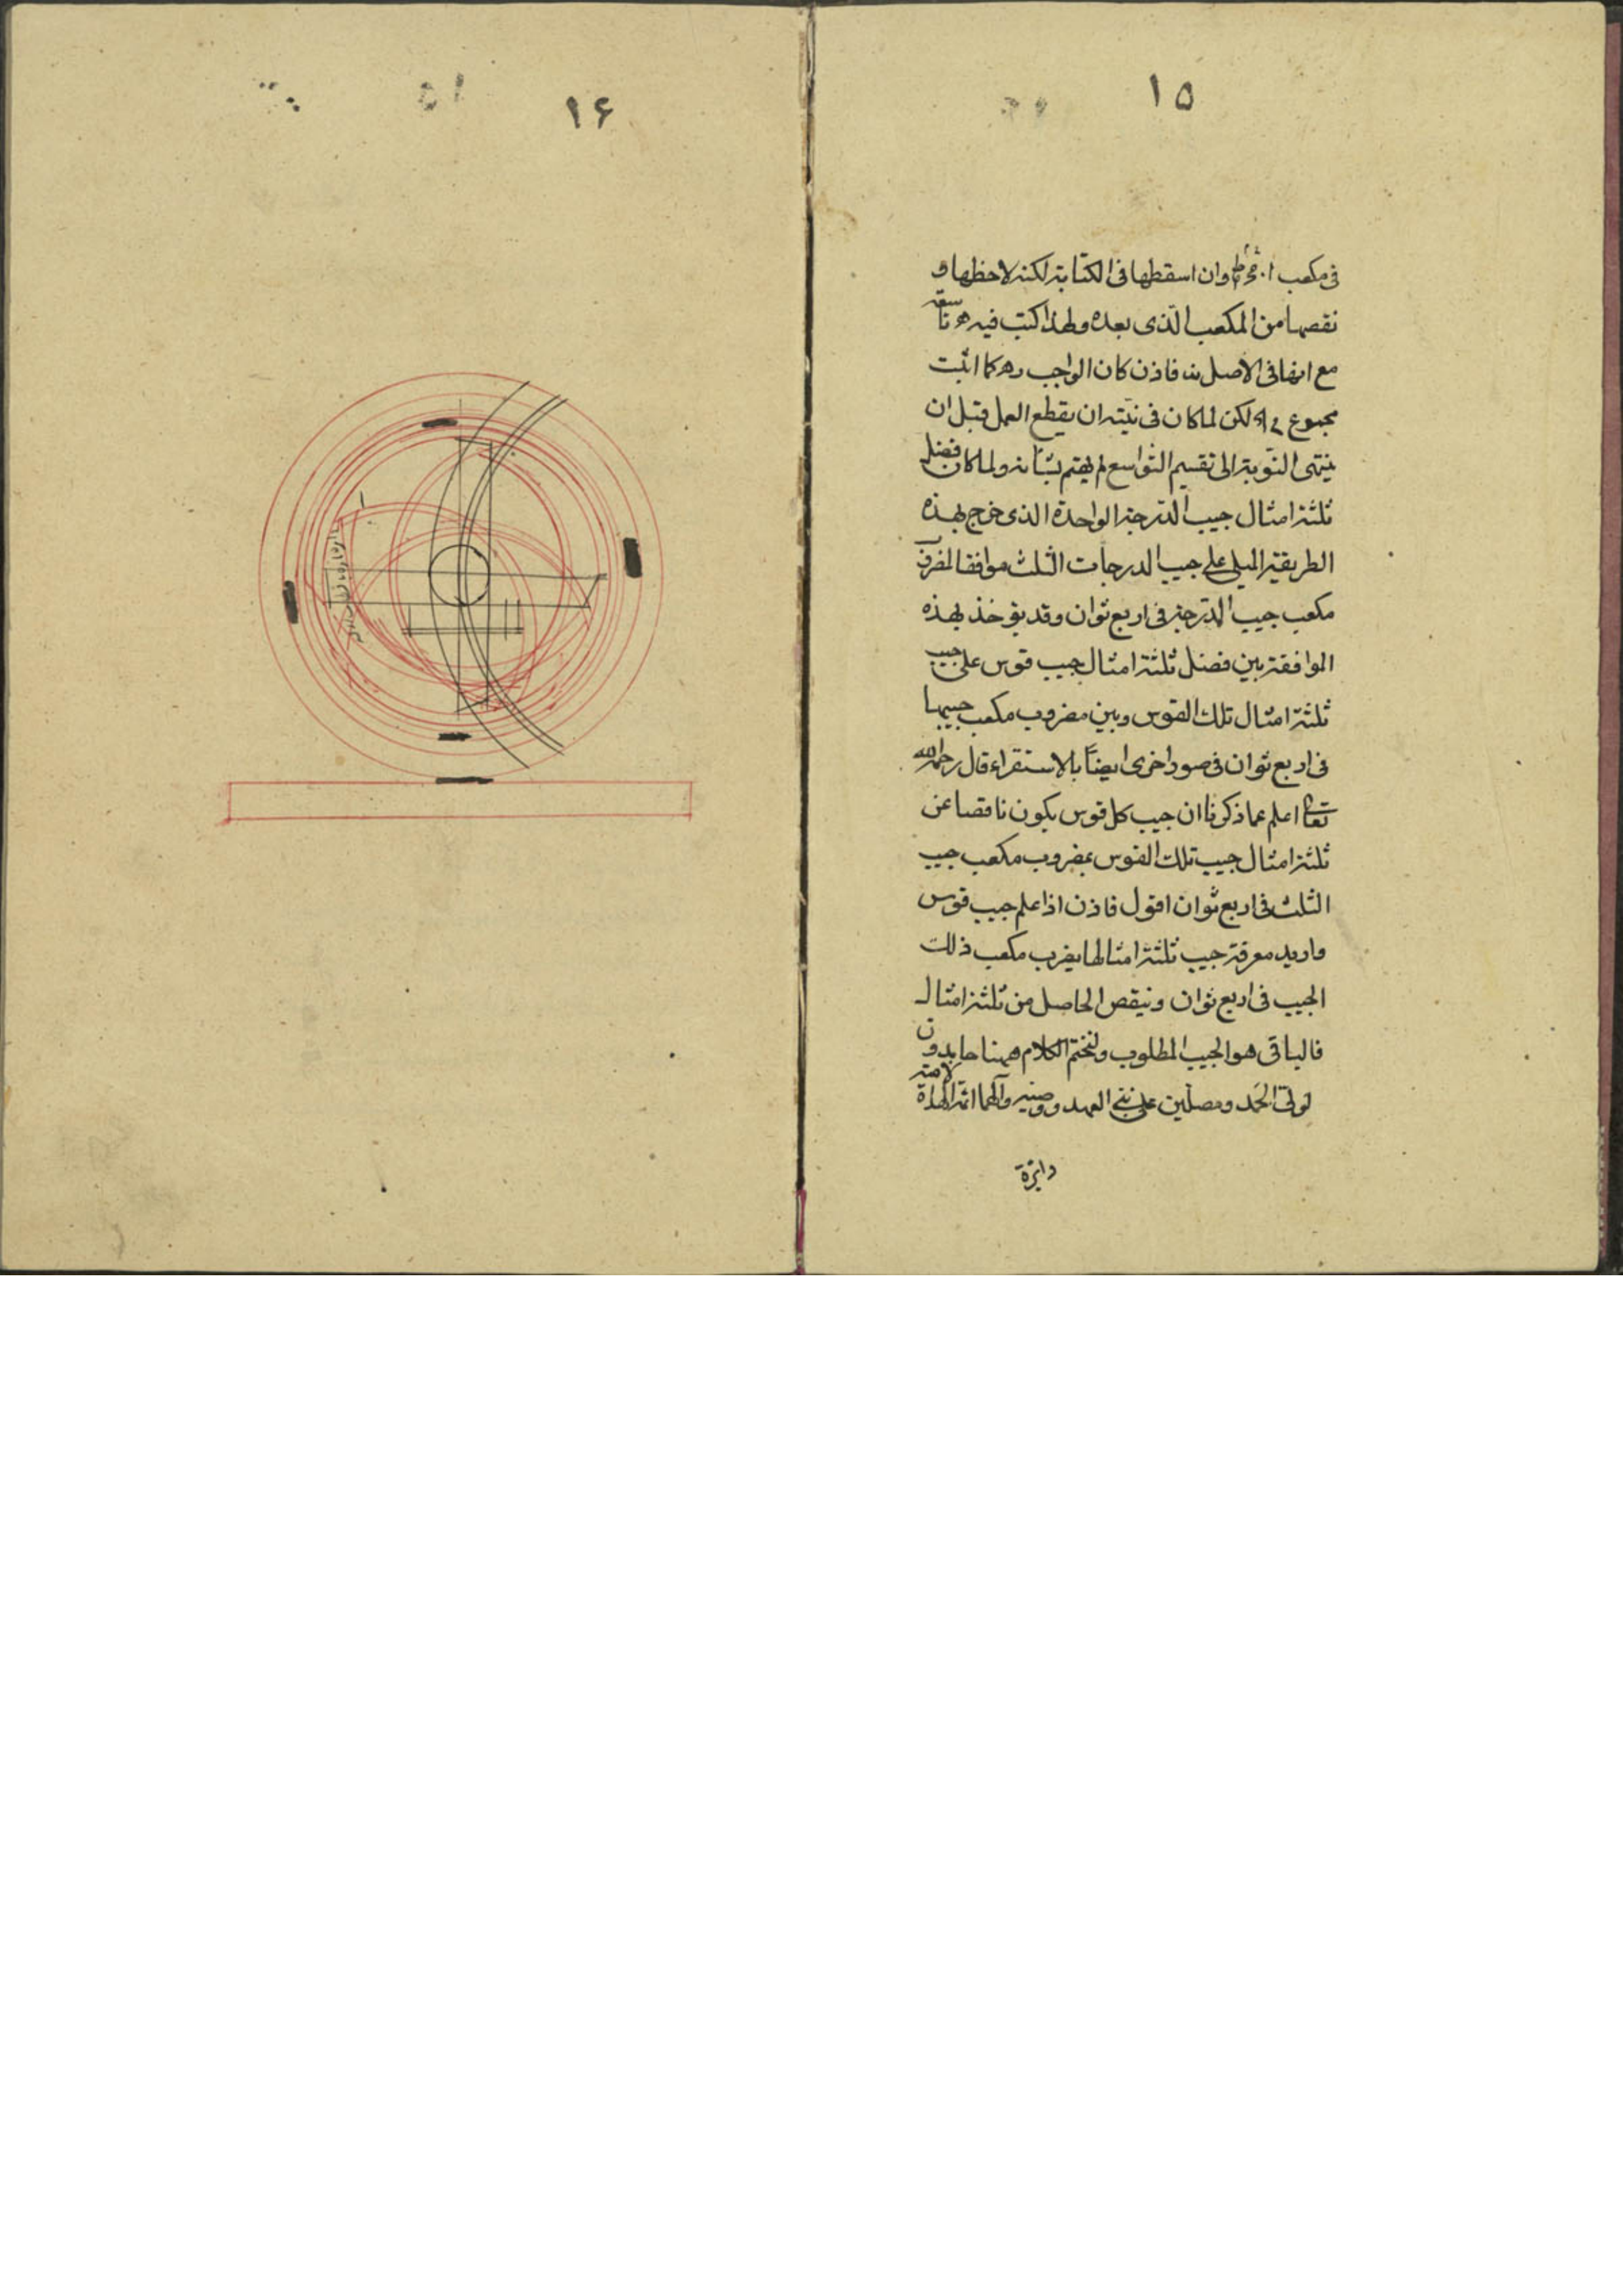 ١٥
فى مكعب وان اسقطها فى الكتابة لكنه لاحظها و
نقصها من المكعب الذى بعده ولهذا كتب فيه تاسعة
مع انها فى الاصل فاذن كان الواجب كما اثبت
مجموع لكن لما كان فى نيته ان يقطع العمل قبل ان
ينتهى النوبة الى تقسيم التواسع لم يهتم بشانه ولما كان فضل
ثلثة امثال جيب الدرجة الواحدة الذى خرج بهذه
الطريقة على جيب الدرجات الثلث موافقا لمضروب
مكعب جيب الدرجة فى اربع ثوان وقد يؤخذ بهذه
الموافقة بين فضل ثلثة امثال جيب قوس على جيب
ثلثة امثال تلك القوس وبين مضروب مكعب جيبها
فى اربع ثوان فى صور اخرى ايضا بالاستقراء قال رحمه الله
تعالى اعلم مما ذكرنا ان جيب كل قوس يكون ناقصا عن
ثلثة امثال جيب تلك القوس بمضروب مكعب جيب
الثلث فى اربع ثوان اقول فاذن اذا علم جيب قوس
واريد معرفة جيب ثلثة امثالها يضرب مكعب ذلك
الجيب فى اربع ثوان وينقص الحاصل من ثلثة امثال
فالباقى هو الجيب المطلوب ولنختم الكلام ههنا حامدين
لولى الحمد ومصلين على نبى العهد ووصيه وآلهما ائمة الهداة
دايرة
١۶